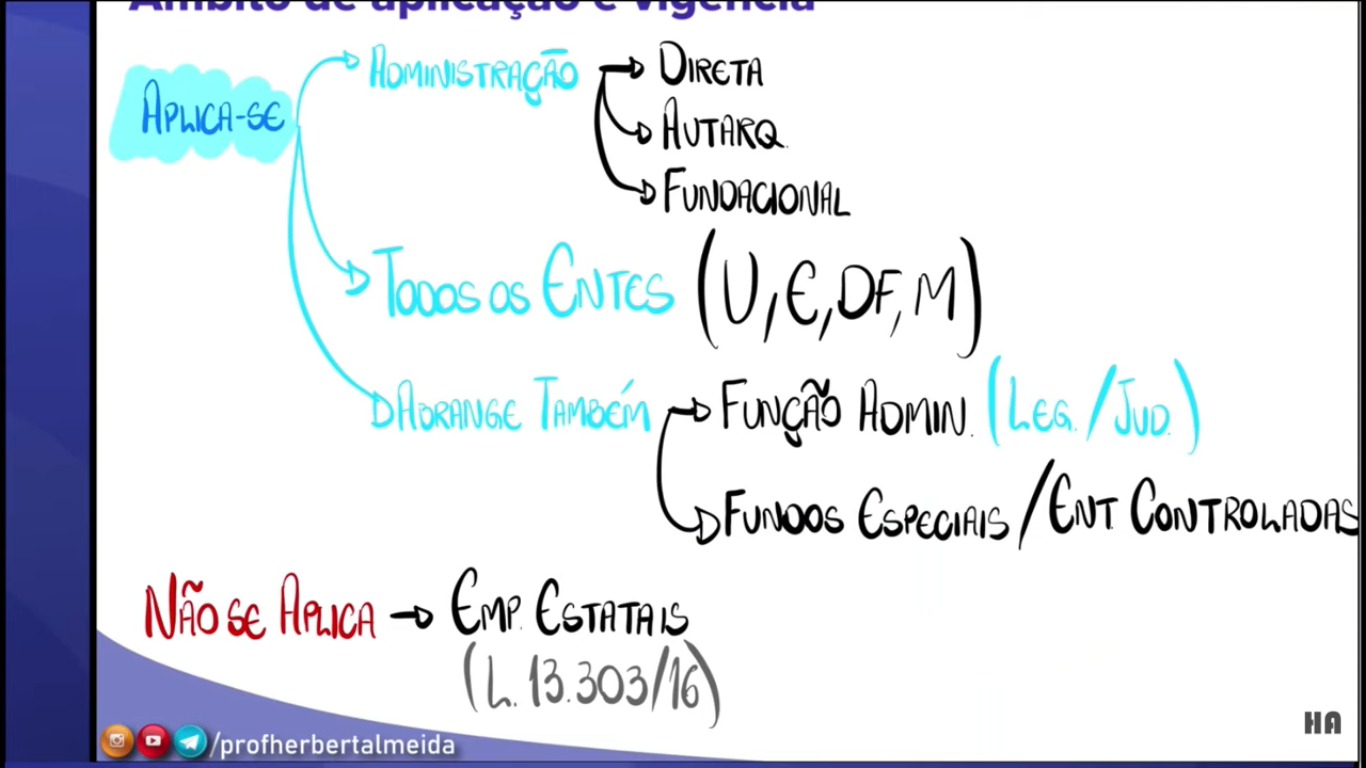 Âmbito de aplicação e vigência
APLICA-SE
ADMINISTRAÇÃO
DIRETA
AUTARQ.
FUNDACIONAL
TODOS OS ENTES (U, E, DF, M)
ABRANGE TAMBÉM
FUNÇÃO ADMIN. (LEG. / JUD.)
FUNDOS ESPECIAIS / ENT. CONTROLADAS
NÃO SE APLICA → EMP. ESTATAIS
(L. 13.303/16)
/profherbertalmeida
HA